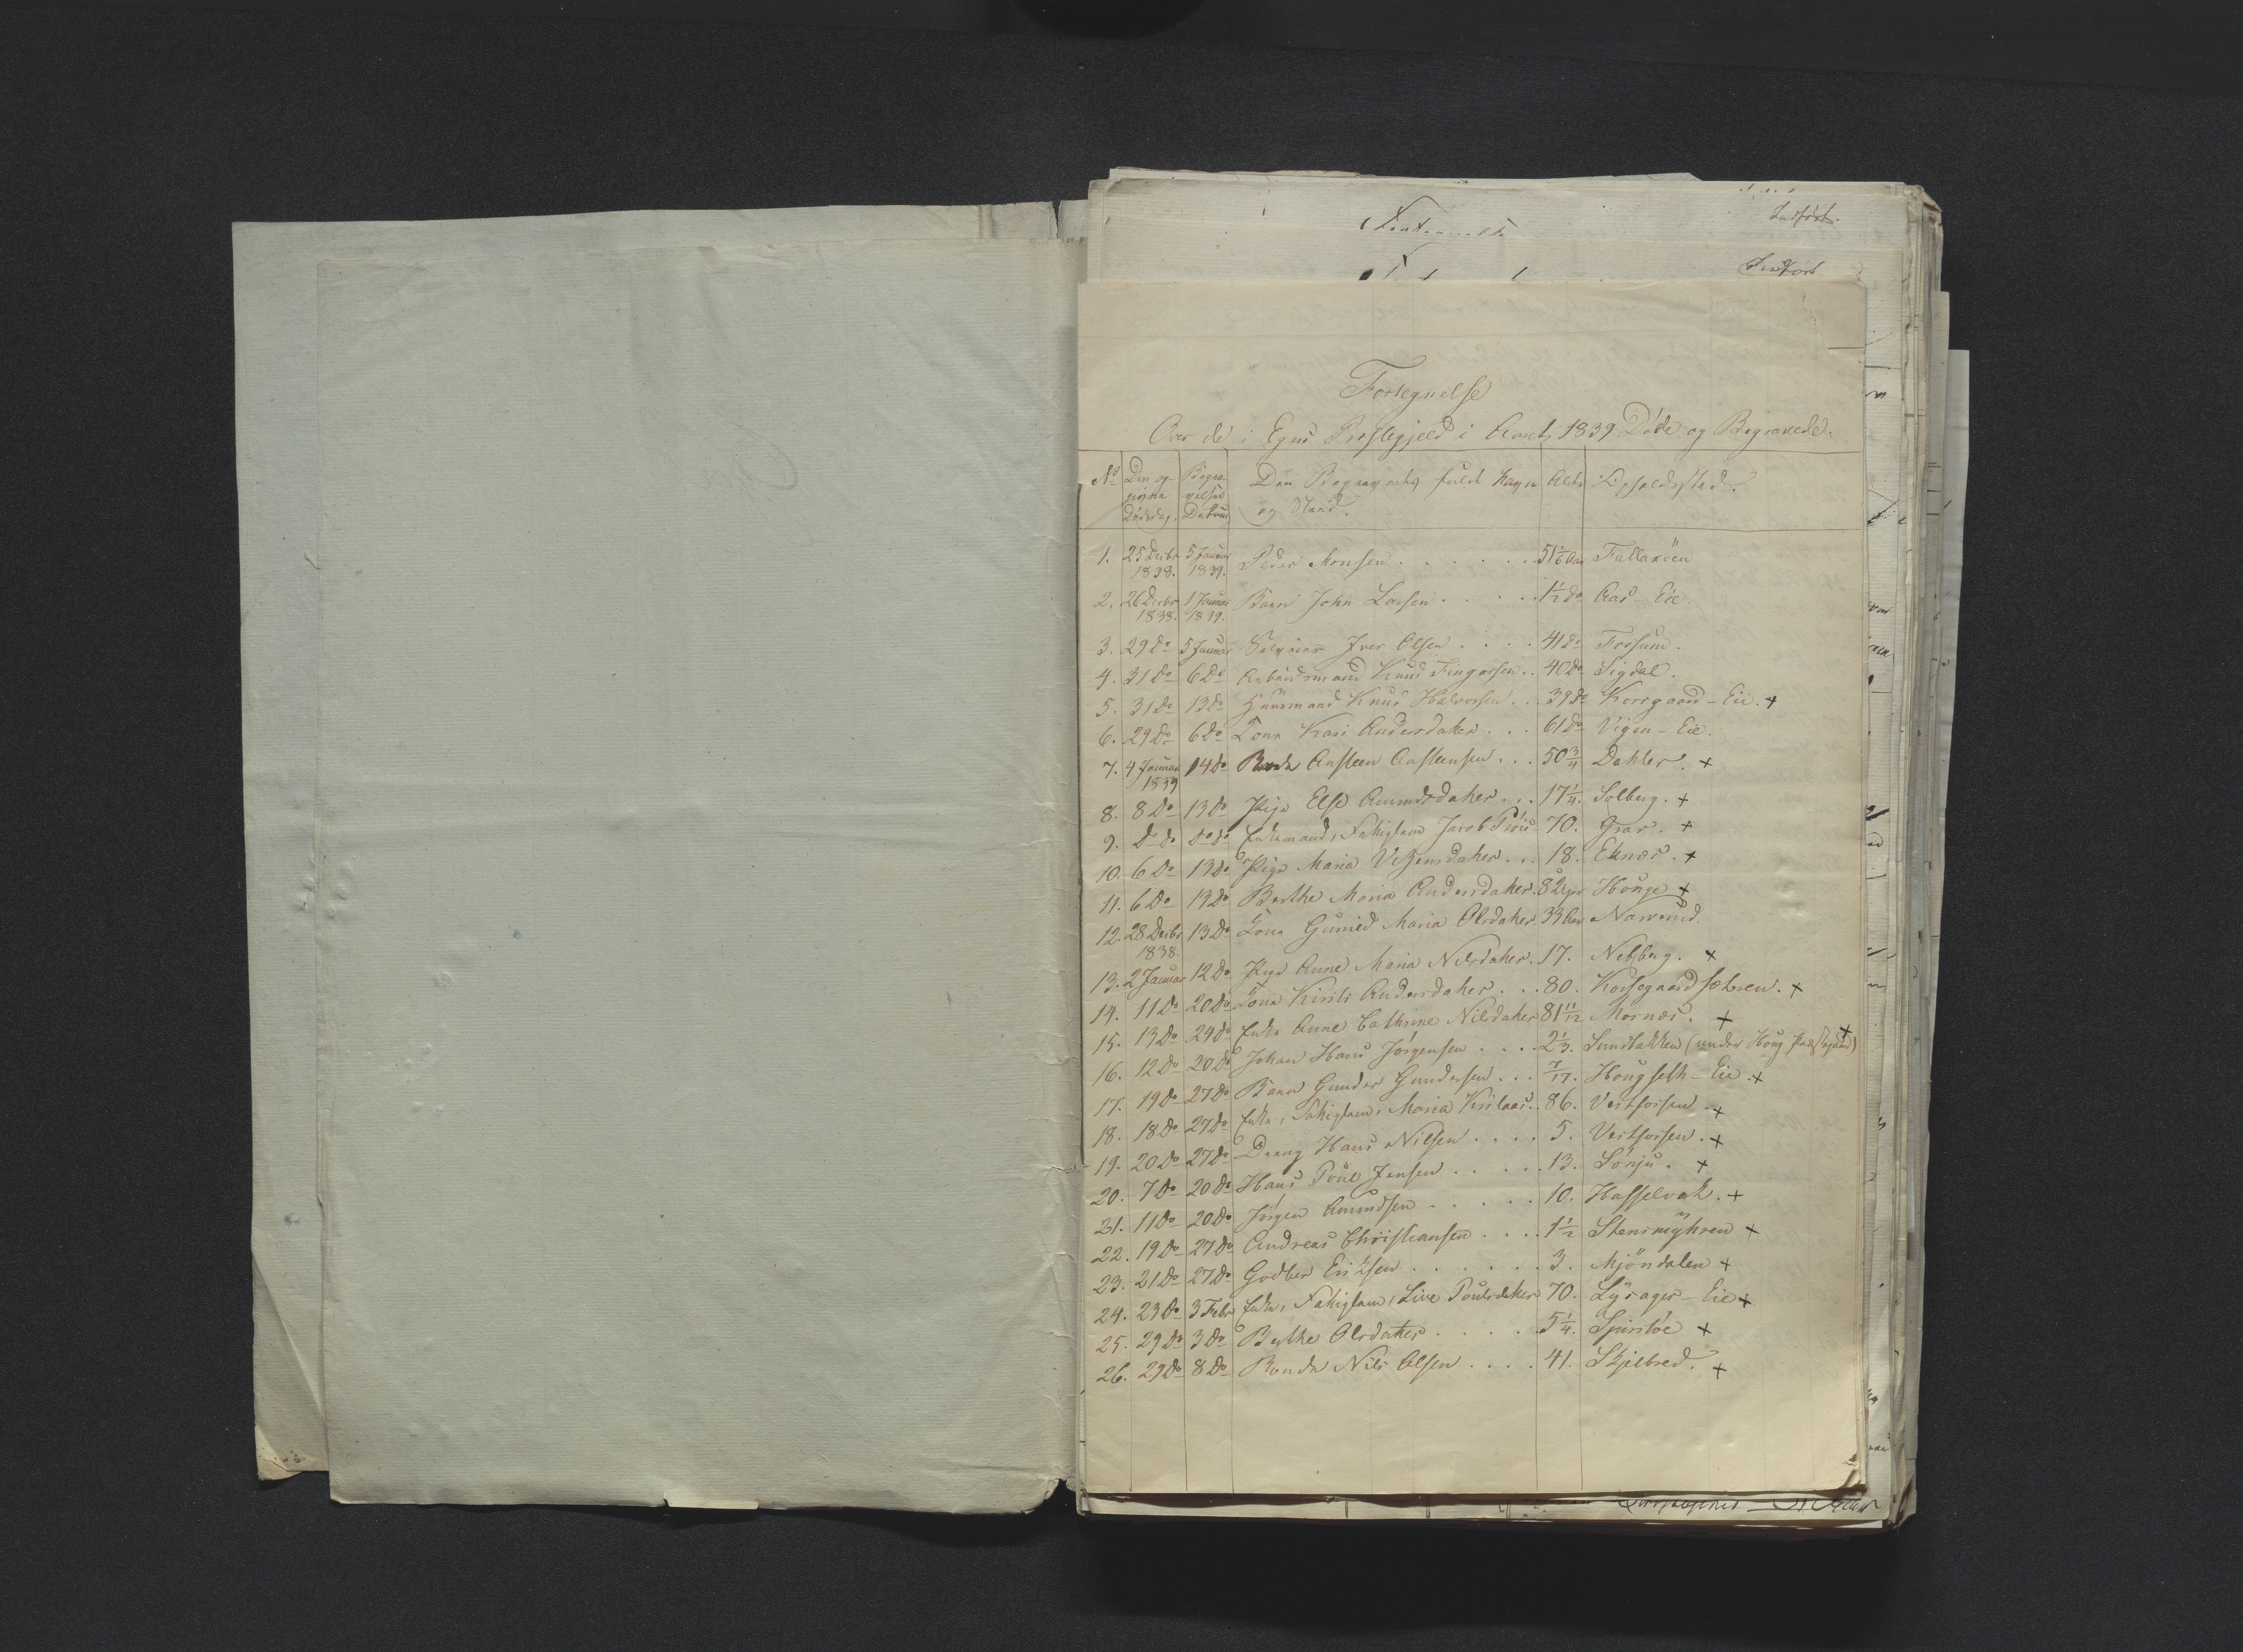 Indført.
Fortegnelse
Over de i Egers Præstegjeld i Aaret 1839 Døde og Begravede.
No Den op- Begra- Den Begravedes fulde Navn Alder Opholdssted.
givne velses og Stand.
Dødsdag. Datum
1. 25 Decbr 5 Januar Peder Monsen . . . . . . 51 1/6 Aar Fallaxöen
1838. 1839.
2. 26 Decbr 1 Januar Barn John Larsen . . . . . 1 1/2 do Aas-Eie.
1838. 1839.
3. 29 Do 5 Januar Iver Olsen . . . . 41 do Fossum.
4. 31 Do 6 Do Arbeidsmand Knud Fingarsen . . 40 do Sigdal.
5. 31 Do 13 Do Huusmand Knud Halvorsen . . 39 do Korsgaard-Eie. +
6. 29 Do 6 Do Kona Kari Andersdatter . . . 61 do Vigen-Eie.
7. 4 Januar 14 Do Bonde Ansteen Ansteensen . . . 50 3/4 Dahler. +
1839
8. 8 Do 13 Do Pige Else Amundsdatter . . . 17 1/4. Solberg. +
9. do do do do Enkemand, Fattiglem Jacob 70. Grav. +
10. 6 Do 13 Do Pige Maria . . 18. Eknes. +
11. 6 Do 13 Do Berthe Maria Andersdatter. 8 Uger Houge +
12. 28 Decbr 13 Do Kona Gunild Maria Olsdatter. 33 Aar Narverud
1838.
13. 2 Januar 12 Do Pige Anne Maria Nilsdatter. 17. Nebberg. +
14. 11 Do 20 Do Kona Kirsti Andersdatter . . . 80. Korsgaardsætren. +
15. 13 Do 24 Do Enke Anne Cathrine Nilsdatter 81 11/12 Mosnæs. +
16. 12 Do 20 Do Johan Hans Jörgensen . . . . 2 1/3. Sundbakken (under Houg Præstegaard) +
17. 19 Do 27 Do Barn Gunder Gundersen . . . 7/17. Hougseth-Eie. +
18. 18 Do 27 Do Enke, Fattiglem, Maria 86. Vestfossen. +
19. 20 Do 27 Do Dreng Hans Nilsen . . . . 5. Vestfossen. +
20. 7 Do 20 Do Hans Poul Jensen . . . . . 13. Sönju. +
21. 11 Do 20 Do Jörgen Amundsen . . . . . 10. Hasselvak. +
22. 19 Do 27 Do Andreas Christiansen . . . . 1 1/2 Stensmyhren +
23. 21 Do 27 Do Godber Eriksen . . . . . . 3. Mjöndalen +
24. 23 Do 3 Febr Enke, Fattiglem, Live Poulsdatter 70. Lysager-Eie +
25. 29 Do 3 Do Berthe Olsdatter . . . . . 5 1/4. +
26. 29 Do 8 Do Bonde Nils Olsen . . . . 41. Skjelbred. +